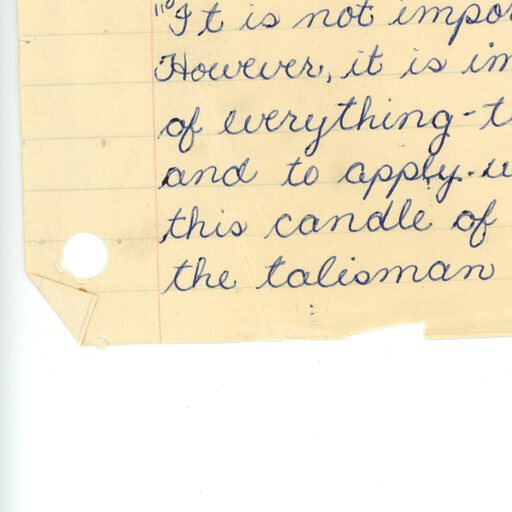 "It is not impor
However, it is im
of everything-t
and to apply-u
this candle of
the talisman